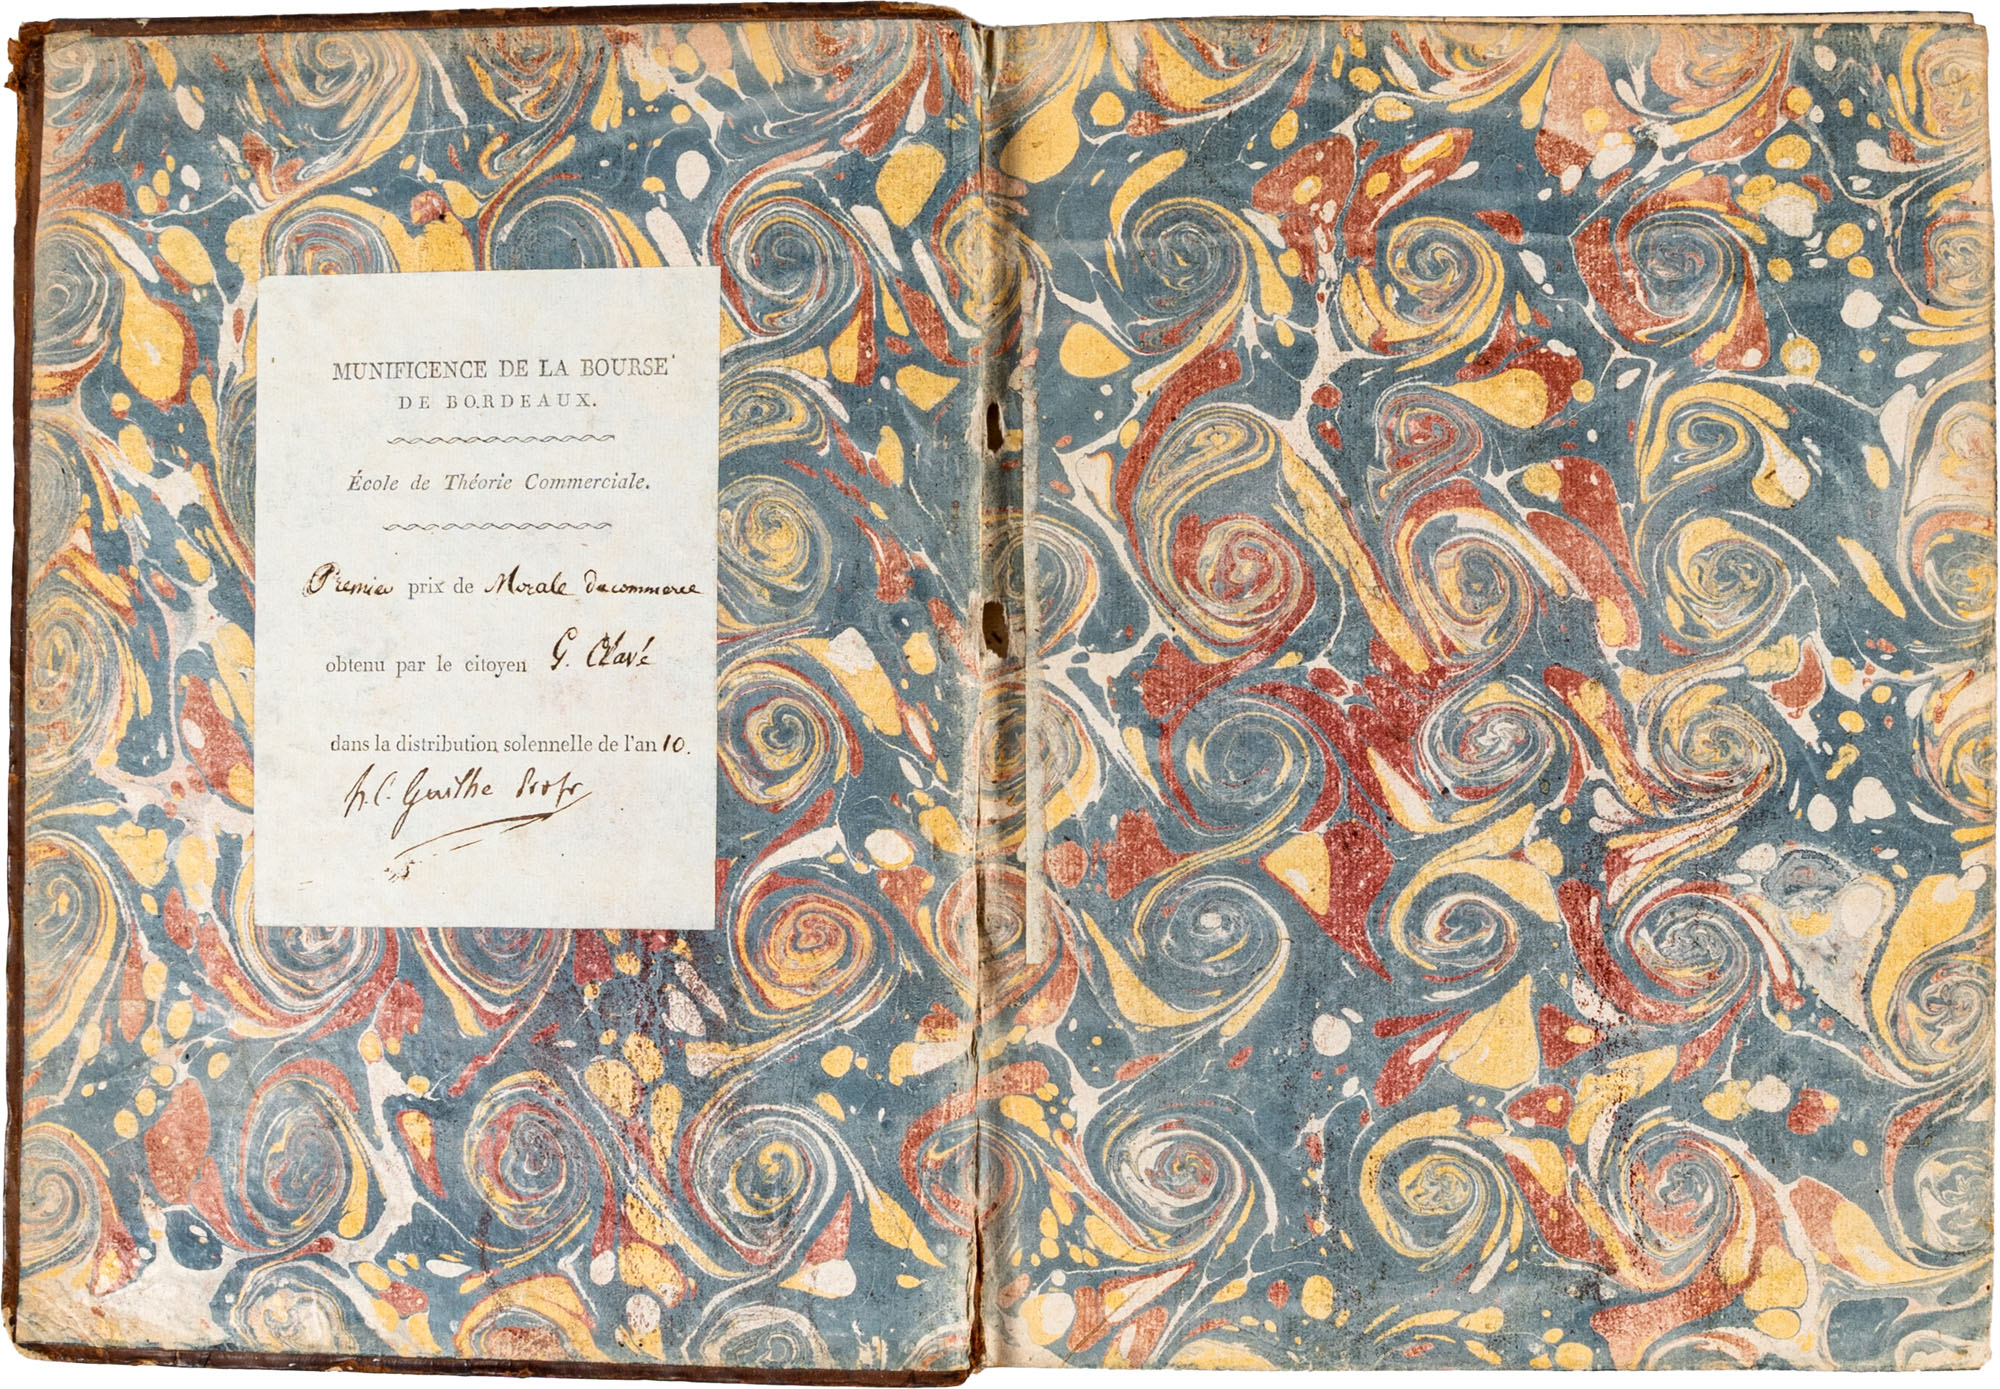 MUNIFICENCE DE LA BOURSE
DE BORDEAUX.
École de Théorie Commerciale.
Premier prix de Morale du commerce
obtenu par le citoyen G. Clavé
dans la distribution solennelle de l'an 10.
h. C. Guilhe Profr